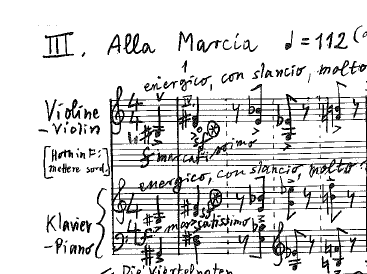 III. Alla Marcia ♩=112 (
1
energico, con slancio, molto
Violine
-Violin
marcatissimo
[Horn in F:
mettere sord.
energico, con slancio, molto
Klavier
-Piano
marcatissimo
Die Viertelnoten